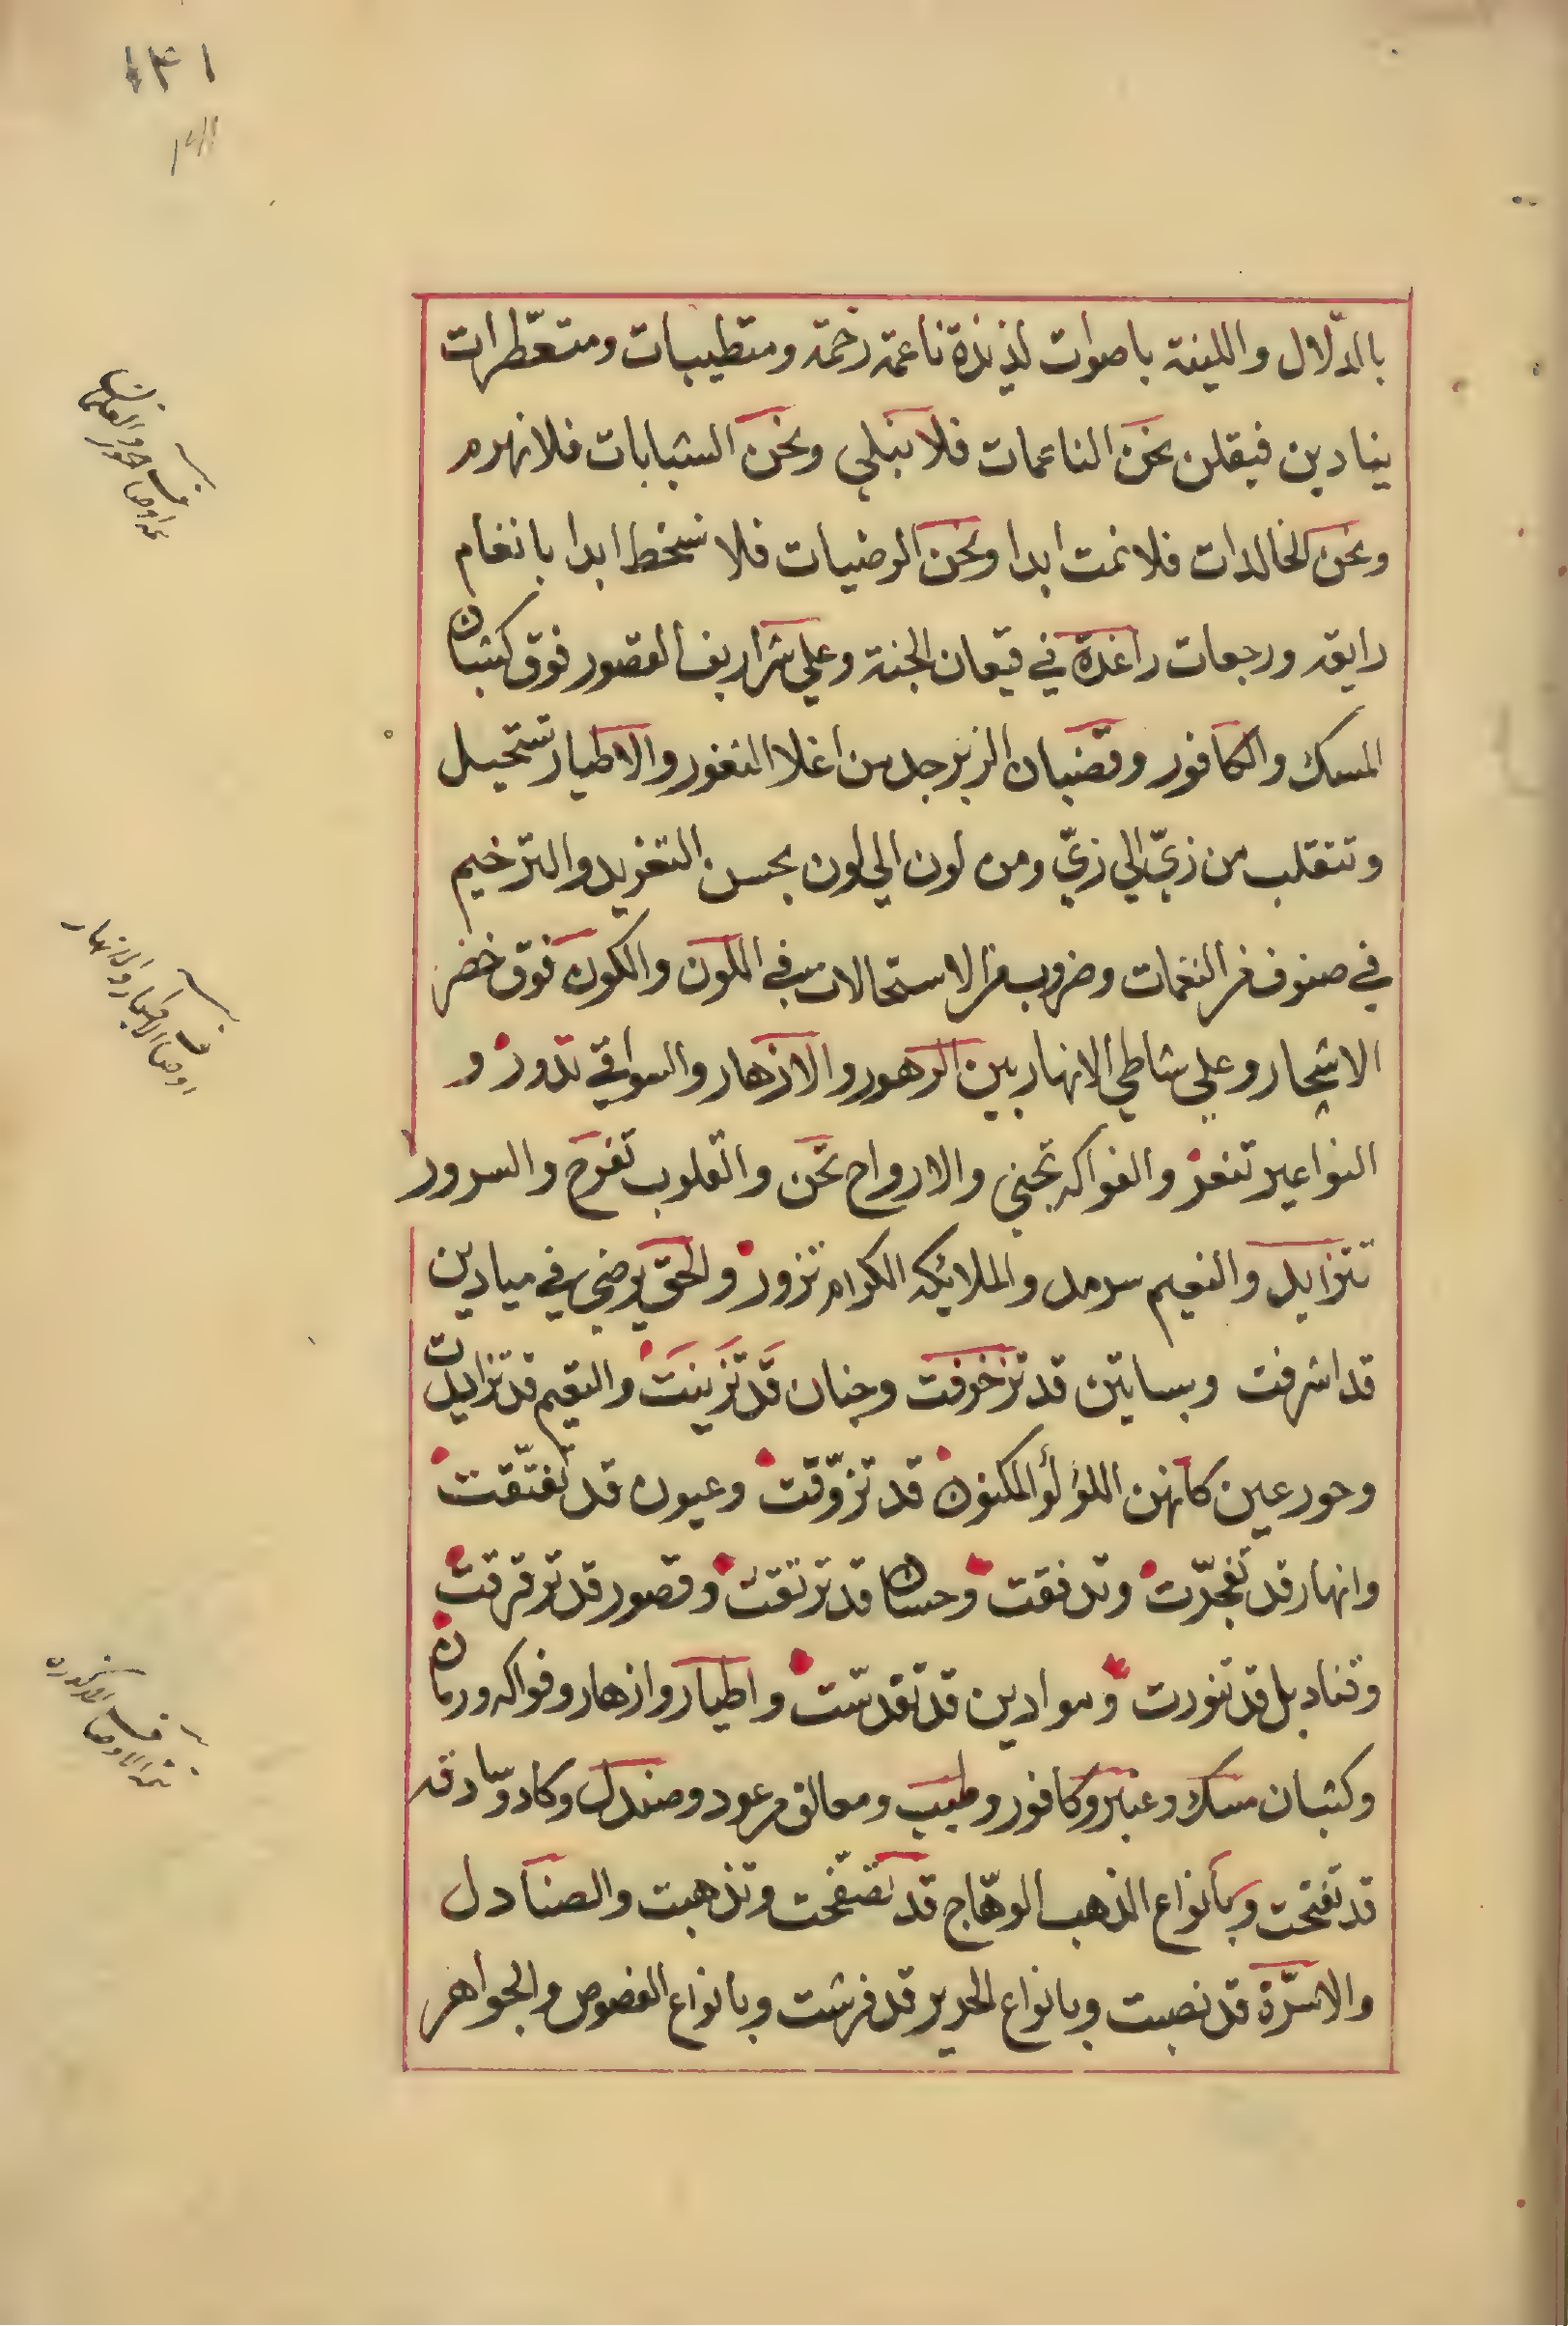 ١٤١
١٤١
بالدّلال واللينة باصوات لذيذة ناعمة رخمة ومتطيبات ومتعطّرات
ينادين فيقلن نحن الناعمات فلا نبلي ونحن الشبابات فلا نهرم
ونحن الخالدات فلا نمت ابدا ونحن الرضيات فلا نسخط ابدا بانغام
رايقة ورجعات راغدة في قيعان الجنة وعلي شراريف القصور فوق كثبان
المسك والكافور وقضبان الزبرجد من اغلا النغور والاطيار تستحيل
وتنقلب من زيّ الي زيّ ومن لون الي لون بحسن التغريد والترخيم
في صنوف من النغمات وضروب من الاستحالات في اللون والكون فوق خضر
الاشجار وعلي شاطي الانهار بين الزهور والازهار والسواقي تدور و
النواعير تنعر والفواكه تجني والارواح تحن والقلوب تفرح والسرور
تتزايد والنعيم سرمد والملايكة الكرام تزور والحق يرضي في ميادين
قد اشرفت وبساتين قد تزخرفت وجنان قد تزينت والنعيم قد تزايدت
وحور عين كانهن اللؤلؤ المكنون قد تزوّقت وعيون قد تفتّقت
وانهار قد تفجرّت وتدفقت وحسان قد ترتقت وقصور قد ترقرقت
وقناديل قد تنورت وموادين قد تقدسّت واطيار وازهار وفواكه ورمان
وكثبان مسك وعنبر وكافور وطيب ومعالق من عود وصندل وكاد وسادقه
قد تفتحت وبانواع الذهب الوهّاج قد تصفّحت وتذهبت والصنادل
والاسرّة قد نصبت وبانواع الحرير قد فرشت وبانواع الفصوص والجواهر
والانهار